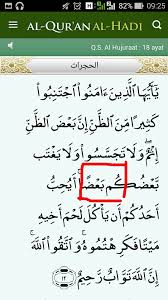 09:25
AL-QUR'AN AL-HADI
Q.S. Al Hujuraat : 18 ayat
الحجرات
يَٰٓأَيُّهَا ٱلَّذِينَ ءَامَنُوا۟ ٱجْتَنِبُوا۟
كَثِيرًا مِّنَ ٱلظَّنِّ إِنَّ بَعْضَ ٱلظَّنِّ
إِثْمٌ ۖ وَلَا تَجَسَّسُوا۟ وَلَا يَغْتَب
بَّعْضُكُم بَعْضًا ۚ أَيُحِبُّ
أَحَدُكُمْ أَن يَأْكُلَ لَحْمَ أَخِيهِ
مَيْتًا فَكَرِهْتُمُوهُ ۚ وَٱتَّقُوا۟ ٱللَّهَ ۚ
إِنَّ ٱللَّهَ تَوَّابٌ رَّحِيمٌ ١٢